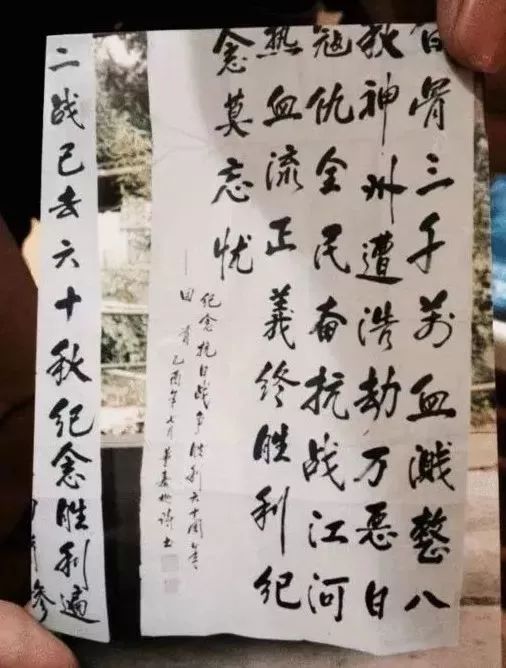 白骨三千萬血溅整八
秋神州遭浩劫万恶日
寇仇全民奋抗战江河
热血流正義终胜利纪
念莫忘忧
纪念抗日战争胜利六十周年
——回首 乙酉年七月 诗书
二战已去六十秋纪念胜利遍